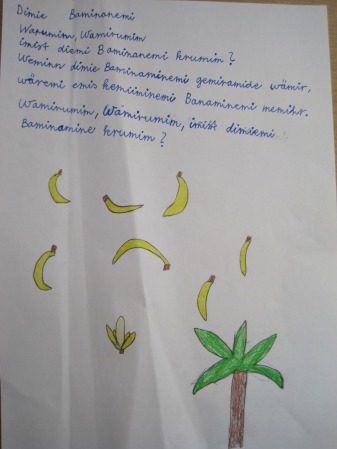 Dimie Baminanemi
Warumim, Warumirumim
imist diemi Baminanemi krumim?
Weminn dimie Baminaminemi gemiramide wämir,
wäremi emis kemiiminemi Banaminemi memihr.
Wamirumim, Wamirumim, imist dimiemi
Baminamine krumim?